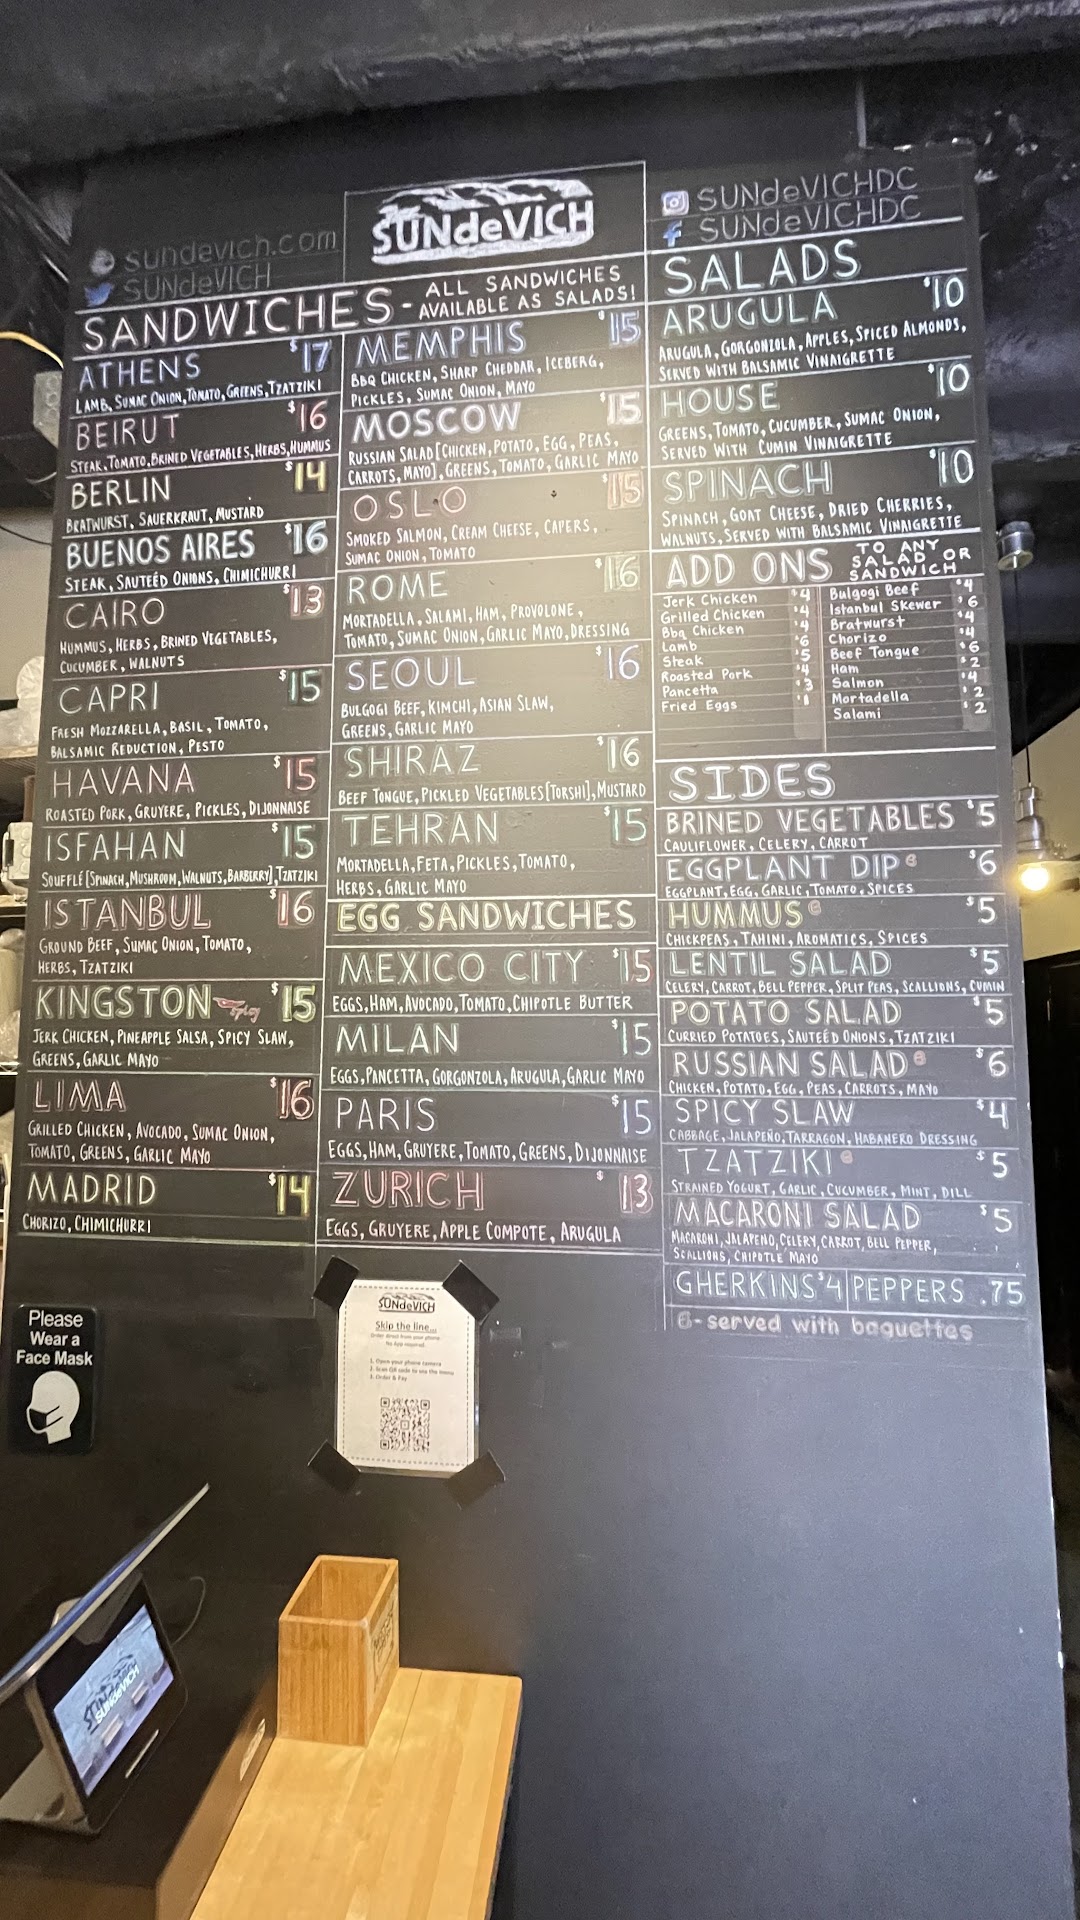 sundevich.com
SUNdeVICH
SUNdeVICH
SUNdeVICHDC
SUNdeVICHDC
SANDWICHES - ALL SANDWICHES
AVAILABLE AS SALADS!
ATHENS $17
LAMB, SUMAC ONION, TOMATO, GREENS, TZATZIKI
BEIRUT $16
STEAK, TOMATO, BRINED VEGETABLES, HERBS, HUMMUS
BERLIN $14
BRATWURST, SAUERKRAUT, MUSTARD
BUENOS AIRES $16
STEAK, SAUTEÉD ONIONS, CHIMICHURRI
CAIRO $13
HUMMUS, HERBS, BRINED VEGETABLES,
CUCUMBER, WALNUTS
CAPRI $15
FRESH MOZZARELLA, BASIL, TOMATO,
BALSAMIC REDUCTION, PESTO
HAVANA $15
ROASTED PORK, GRUYERE, PICKLES, DIJONNAISE
ISFAHAN $15
SOUFFLÉ [SPINACH, MUSHROOM, WALNUTS, BARBERRY], TZATZIKI
ISTANBUL $16
GROUND BEEF, SUMAC ONION, TOMATO,
HERBS, TZATZIKI
KINGSTON spicy $15
JERK CHICKEN, PINEAPPLE SALSA, SPICY SLAW,
GREENS, GARLIC MAYO
LIMA $16
GRILLED CHICKEN, AVOCADO, SUMAC ONION,
TOMATO, GREENS, GARLIC MAYO
MADRID $14
CHORIZO, CHIMICHURRI
MEMPHIS $15
BBQ CHICKEN, SHARP CHEDDAR, ICEBERG,
PICKLES, SUMAC ONION, MAYO
MOSCOW $15
RUSSIAN SALAD [CHICKEN, POTATO, EGG, PEAS,
CARROTS, MAYO], GREENS, TOMATO, GARLIC MAYO
OSLO $15
SMOKED SALMON, CREAM CHEESE, CAPERS,
SUMAC ONION, TOMATO
ROME $16
MORTADELLA, SALAMI, HAM, PROVOLONE,
TOMATO, SUMAC ONION, GARLIC MAYO, DRESSING
SEOUL $16
BULGOGI BEEF, KIMCHI, ASIAN SLAW,
GREENS, GARLIC MAYO
SHIRAZ $16
BEEF TONGUE, PICKLED VEGETABLES [TORSHI], MUSTARD
TEHRAN $15
MORTADELLA, FETA, PICKLES, TOMATO,
HERBS, GARLIC MAYO
EGG SANDWICHES
MEXICO CITY $15
EGGS, HAM, AVOCADO, TOMATO, CHIPOTLE BUTTER
MILAN $15
EGGS, PANCETTA, GORGONZOLA, ARUGULA, GARLIC MAYO
PARIS $15
EGGS, HAM, GRUYERE, TOMATO, GREENS, DIJONNAISE
ZURICH $13
EGGS, GRUYERE, APPLE COMPOTE, ARUGULA
SALADS
ARUGULA $10
ARUGULA, GORGONZOLA, APPLES, SPICED ALMONDS,
SERVED WITH BALSAMIC VINAIGRETTE
HOUSE $10
GREENS, TOMATO, CUCUMBER, SUMAC ONION,
SERVED WITH CUMIN VINAIGRETTE
SPINACH $10
SPINACH, GOAT CHEESE, DRIED CHERRIES,
WALNUTS, SERVED WITH BALSAMIC VINAIGRETTE
ADD ONS TO ANY
SALAD OR
SANDWICH
Jerk Chicken $4
Grilled Chicken $4
Bbq Chicken $4
Lamb $6
Steak $5
Roasted Pork $4
Pancetta $3
Fried Eggs
Bulgogi Beef $4
Istanbul Skewer $6
Bratwurst $4
Chorizo $4
Beef Tongue $6
Ham $2
Salmon $4
Mortadella $2
Salami $2
SIDES
BRINED VEGETABLES $5
CAULIFLOWER, CELERY, CARROT
EGGPLANT DIP B $6
EGGPLANT, EGG, GARLIC, TOMATO, SPICES
HUMMUS B $5
CHICKPEAS, TAHINI, AROMATICS, SPICES
LENTIL SALAD $5
CELERY, CARROT, BELL PEPPER, SPLIT PEAS, SCALLIONS, CUMIN
POTATO SALAD $5
CURRIED POTATOES, SAUTEÉD ONIONS, TZATZIKI
RUSSIAN SALAD B $6
CHICKEN, POTATO, EGG, PEAS, CARROTS, MAYO
SPICY SLAW $4
CABBAGE, JALAPEÑO, TARRAGON, HABANERO DRESSING
TZATZIKI B $5
STRAINED YOGURT, GARLIC, CUCUMBER, MINT, DILL
MACARONI SALAD $5
MACARONI, JALAPENO, CELERY, CARROT, BELL PEPPER,
SCALLIONS, CHIPOTLE MAYO
GHERKINS $4 PEPPERS .75
B - served with baguettes
Please
Wear a
Face Mask
SUNdeVICH
Skip the line...
Order direct from your phone
No App required.
1. Open your phone camera
2. Scan QR code to see the menu
3. Order & Pay
SUNdeVICH